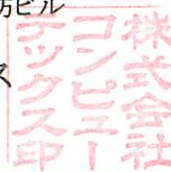 方ビル
ス
株式会社
コンピュー
テックス印